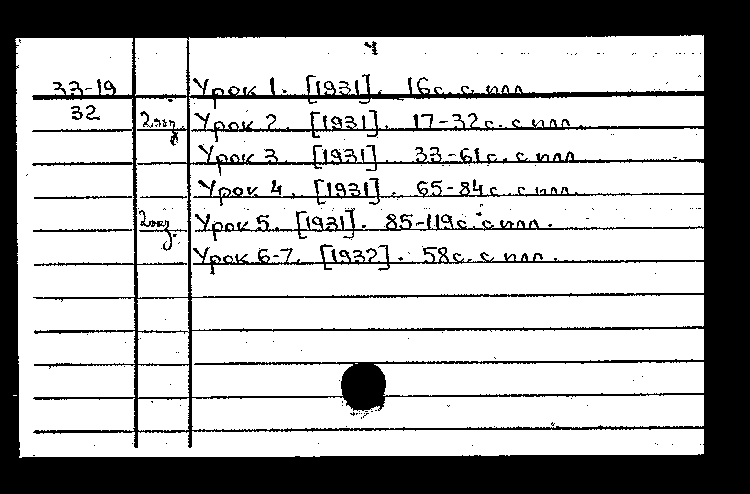 4
33-19 Урок 1. [1931]. 16с. с илл.
32 2экз. Урок 2. [1931]. 17-32с. с илл.
Урок 3. [1931]. 33-61с. с илл.
Урок 4. [1931]. 65-84с. с илл.
2экз. Урок 5. [1931]. 85-119с. с илл.
Урок 6-7. [1932]. 58с. с илл.